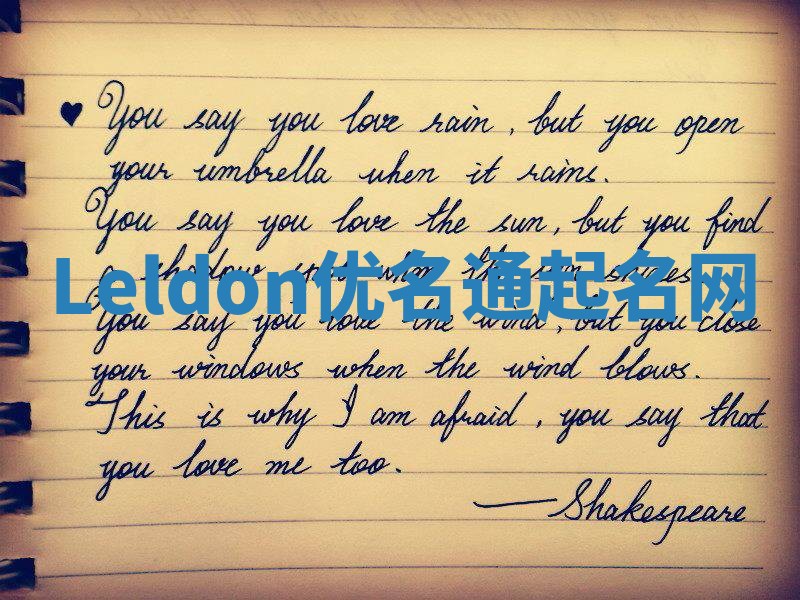 ♥ You say you love rain, but you open
your umbrella when it rains.
You say you love the sun, but you find
a shadow spot when the sun shines.
Leldon优名通起名网
You say you love the wind, but you close
your windows when the wind blows.
This is why I am afraid, you say that
you love me too.
— Shakespeare